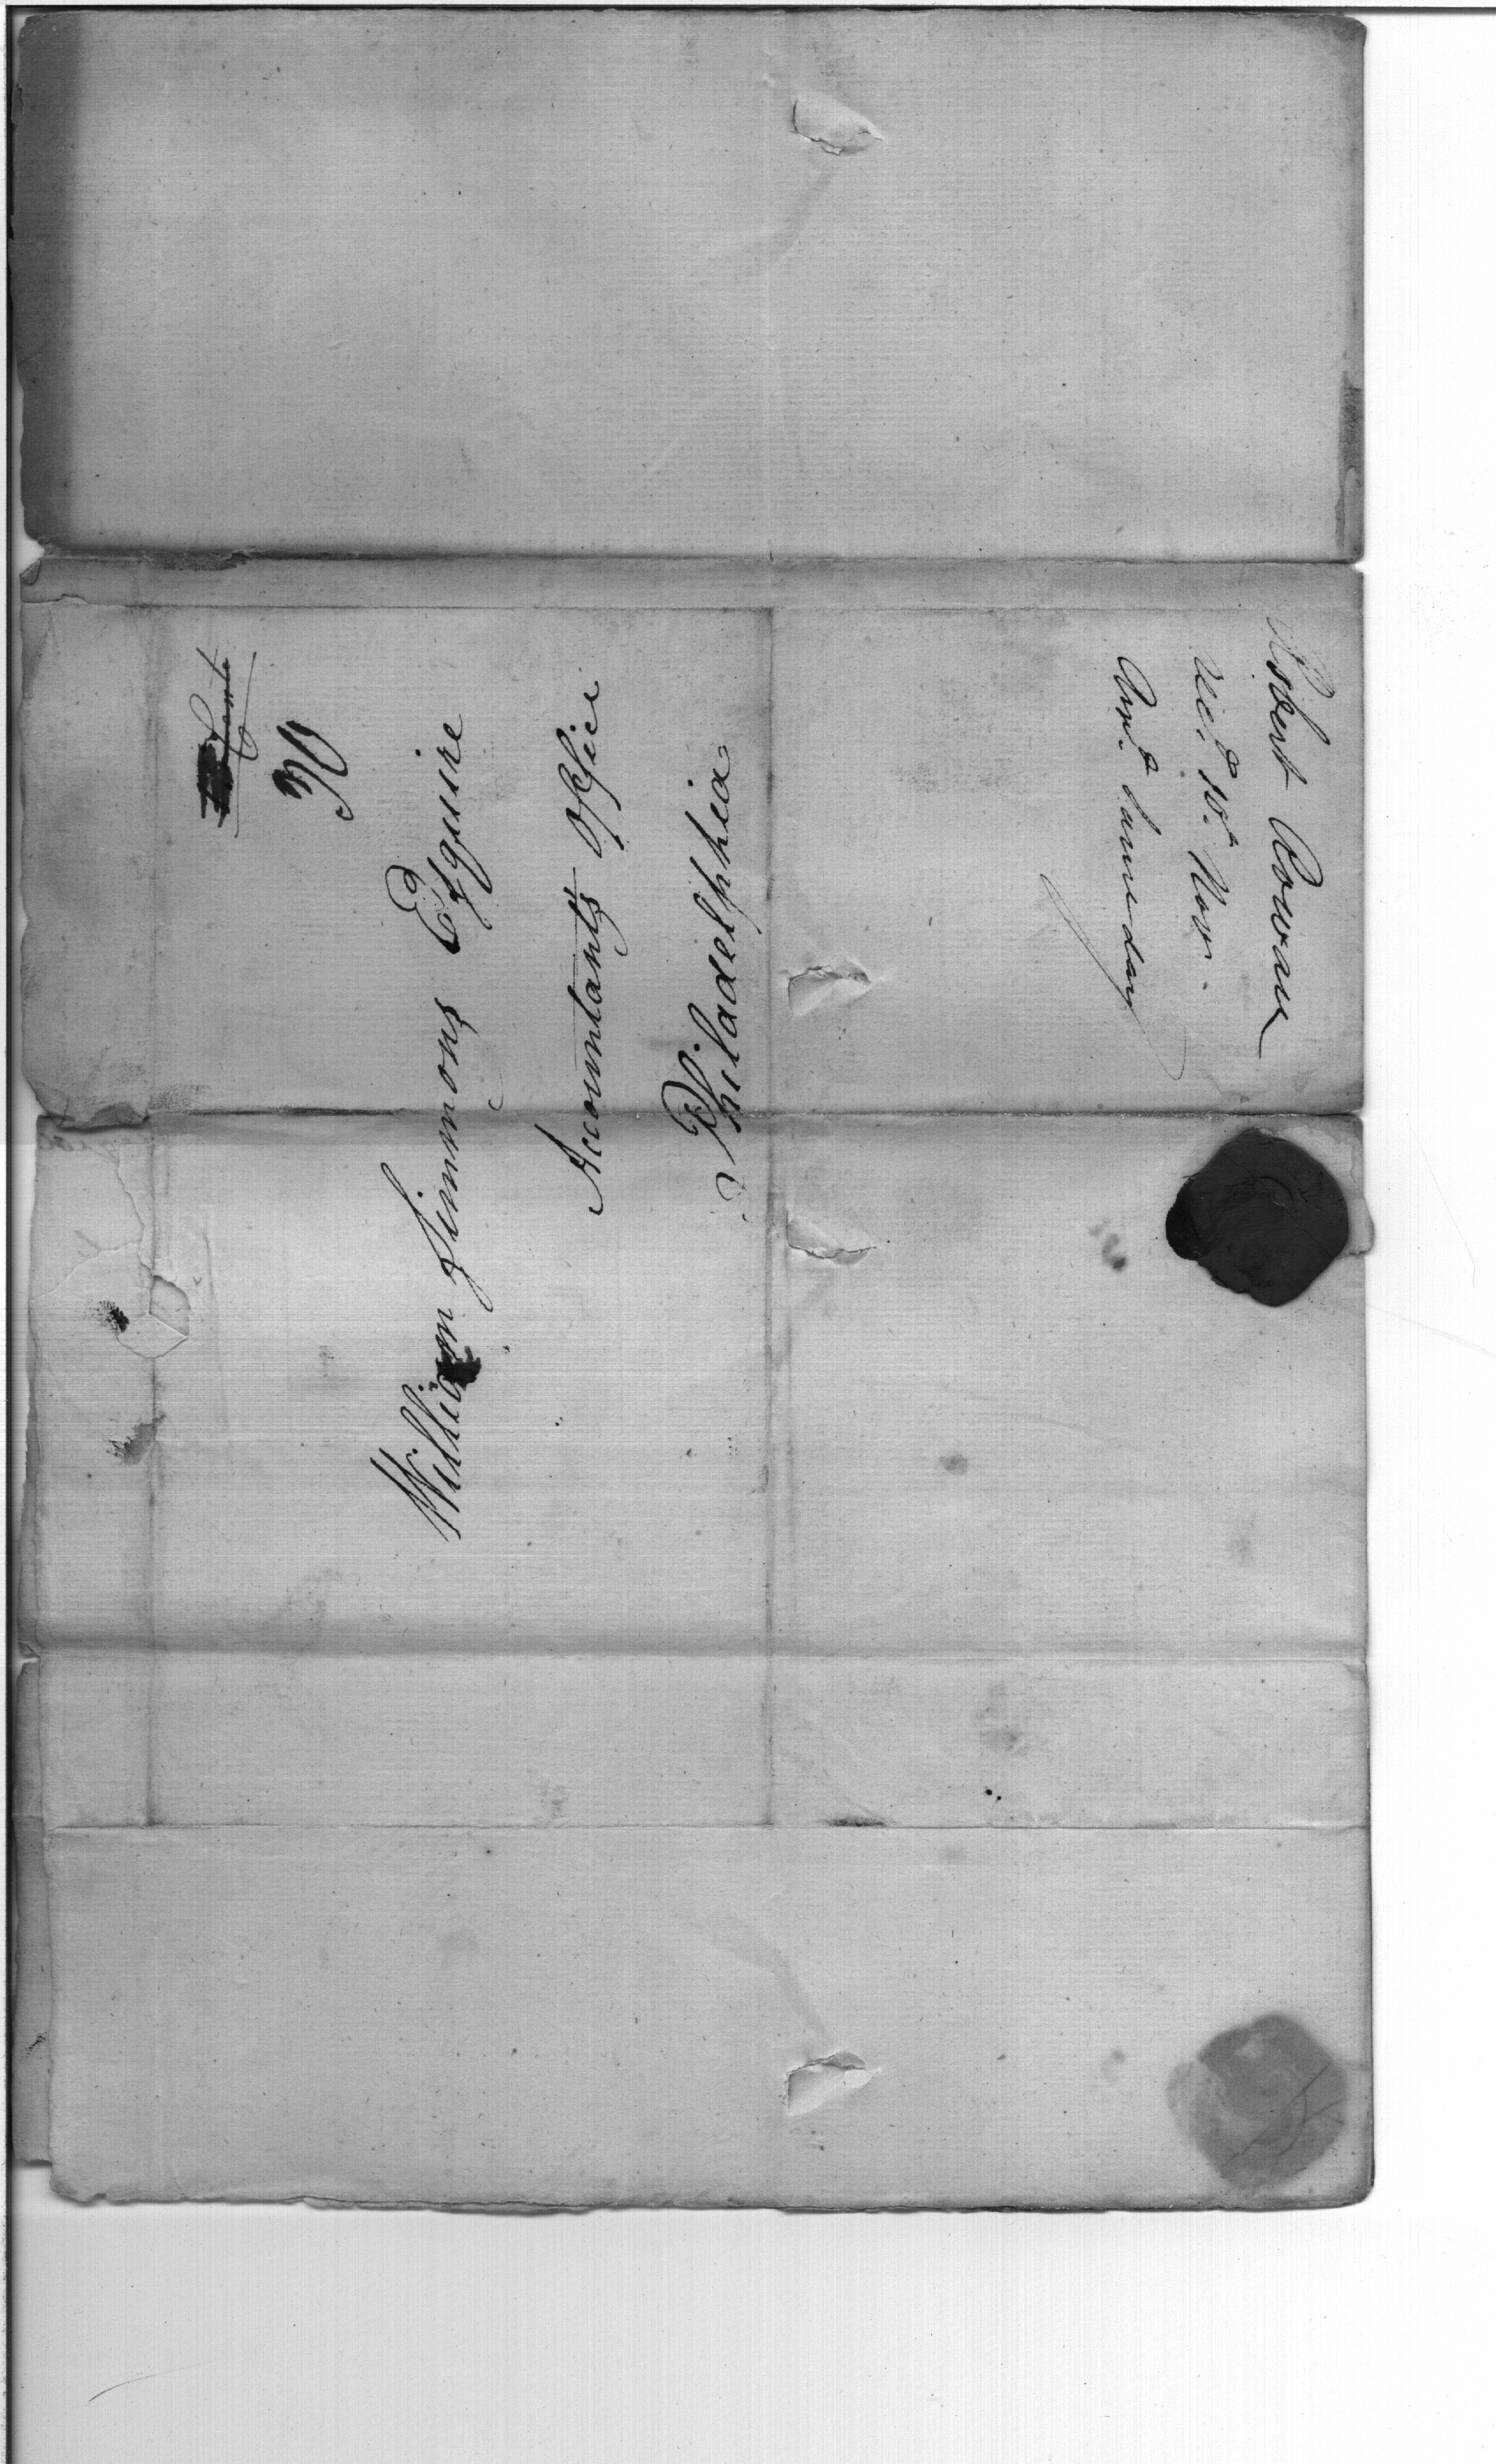 30
William Simmons Esquire
Accountants Office
Philadelphia
Robert Rowan
recd. 10th Nov.
Ansd. same day